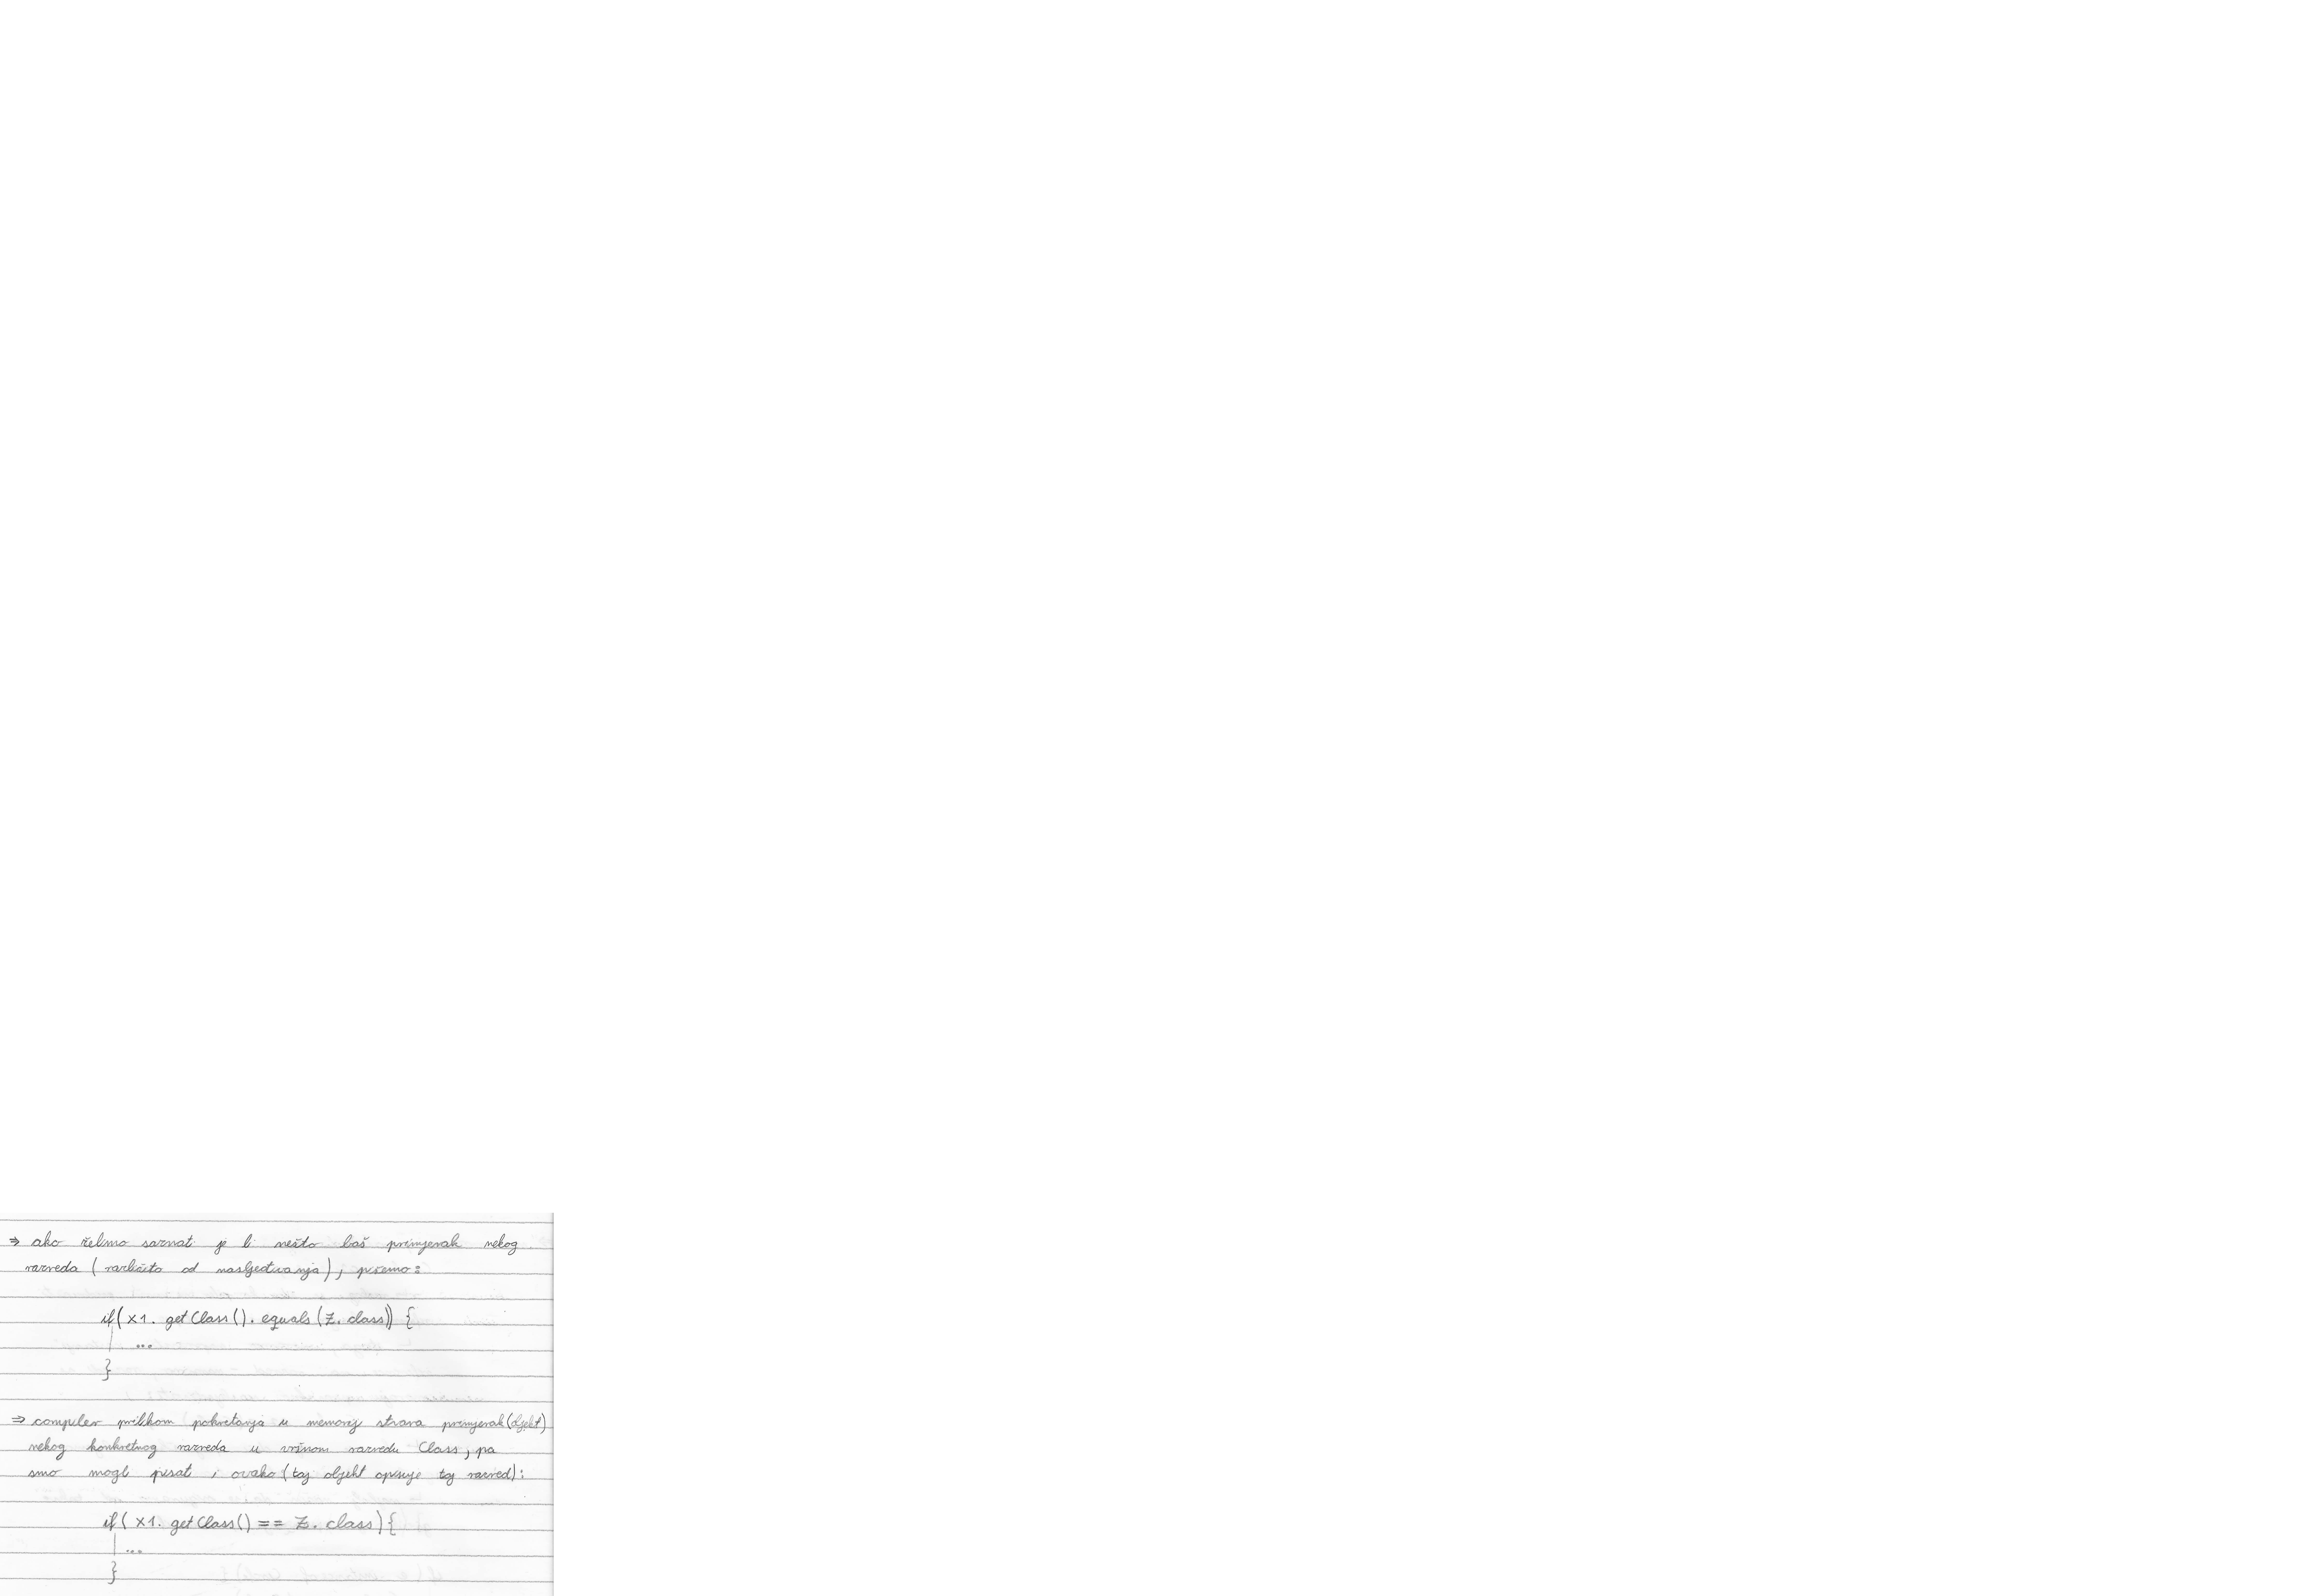 ⇒ ako želimo saznati je li nešto baš primjerak nekog
razreda (različito od nasljeđivanja), pišemo:
if(x1.getClass().equals(Z.class)) {
...
}
⇒ compiler prilikom pokretanja u memoriji stvara primjerak(objekt)
nekog konkretnog razreda u vršnom razredu Class, pa
smo mogli pisati i ovako (taj objekt opisuje taj razred):
if(x1.getClass() == Z.class){
...
}